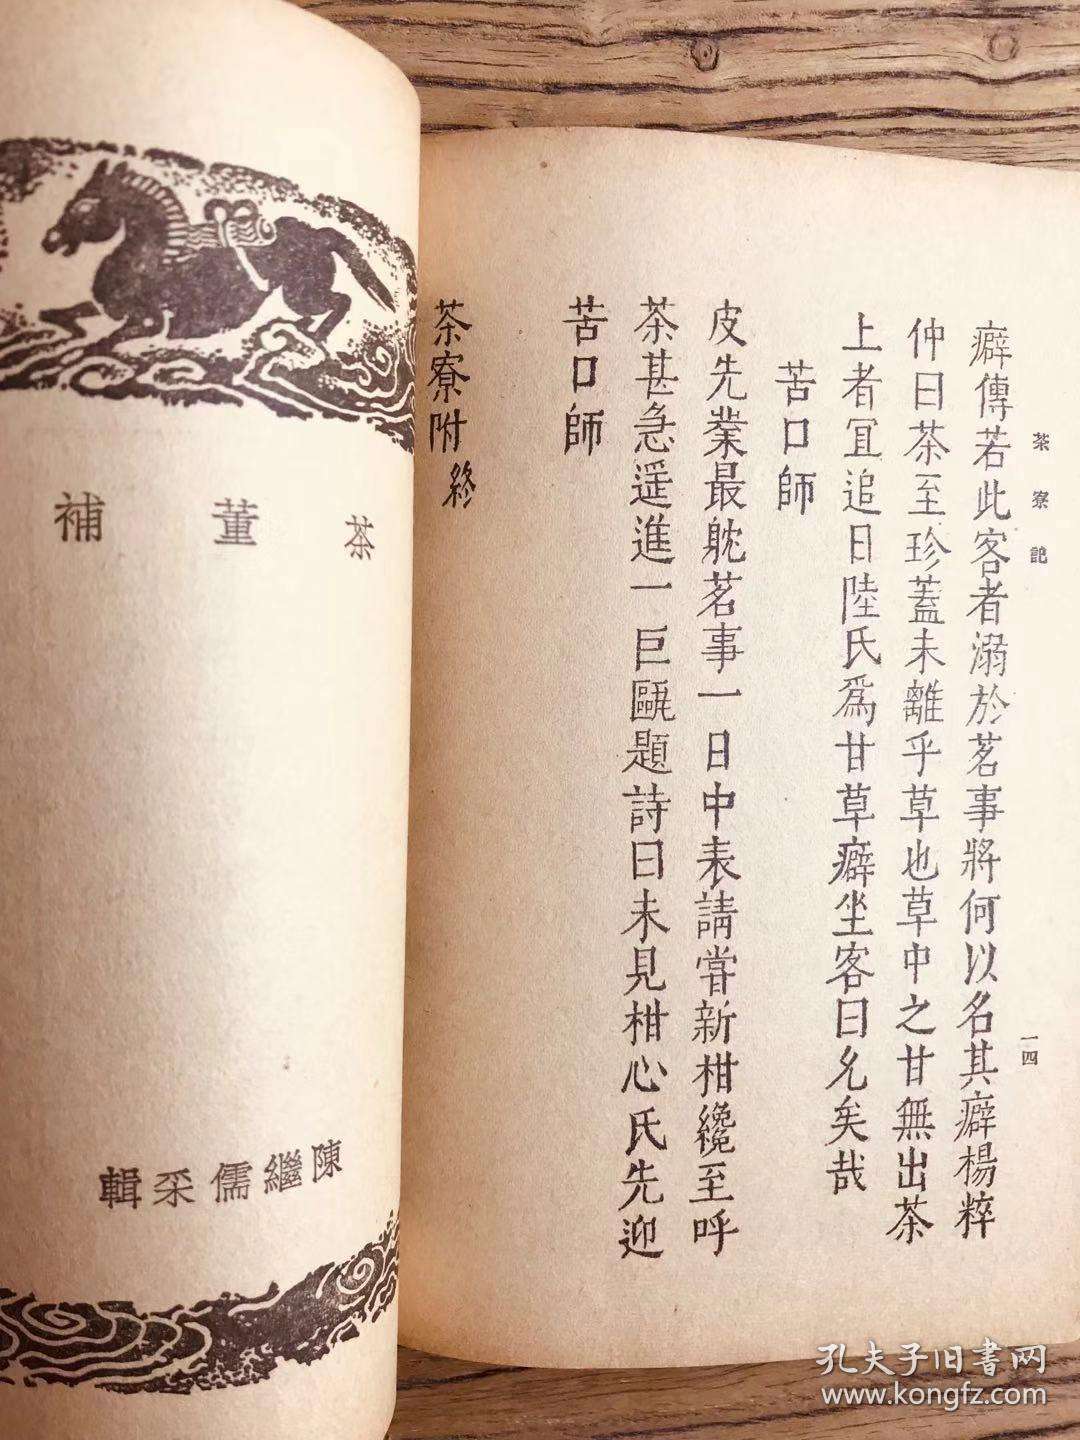 茶寮記
一四
癖傳若此客者溺於茗事將何以名其癖楊粹
仲曰茶至珍蓋未離乎草也草中之甘無出茶
上者宜追目陸氏爲甘草癖坐客曰允矣哉
苦口師
皮光業最躭茗事一日中表請嘗新柑纔至呼
茶甚急逕進一巨甌題詩曰未見柑心氏先迎
苦口師
茶寮附終
茶董補
陳繼儒采輯
孔夫子旧書网
www.kongfz.com